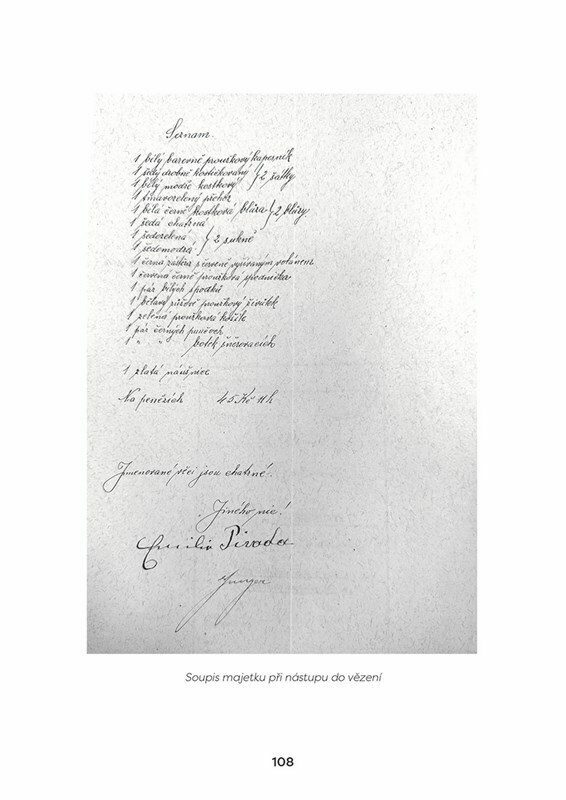 Seznam.
1 bílý barevně proužkový kapesník
1 šedý drobně kostičkovaný } 2 šátky
1 bílý modře kostkový
1 tmavozelený přehoz
1 bílá černě kostková blůza } 2 blůzy
1 šedá chatrná
1 šedozelená } 2 sukně
1 šedomodrá
1 černá zástěra s červeně vyšívaným volánem
1 červená černě proužková spodnička
1 pár bílých spodků
1 bělavý růžově proužkový živůtek
1 zelená proužková košile
1 pár černých punčoch
1 " " botek šněrovacích
1 zlatá náušnice
Na penězích 45 Kč 11 h
Jmenované věci jsou chatrné.
Jiného nic!
Emilie
Soupis majetku při nástupu do vězení
108